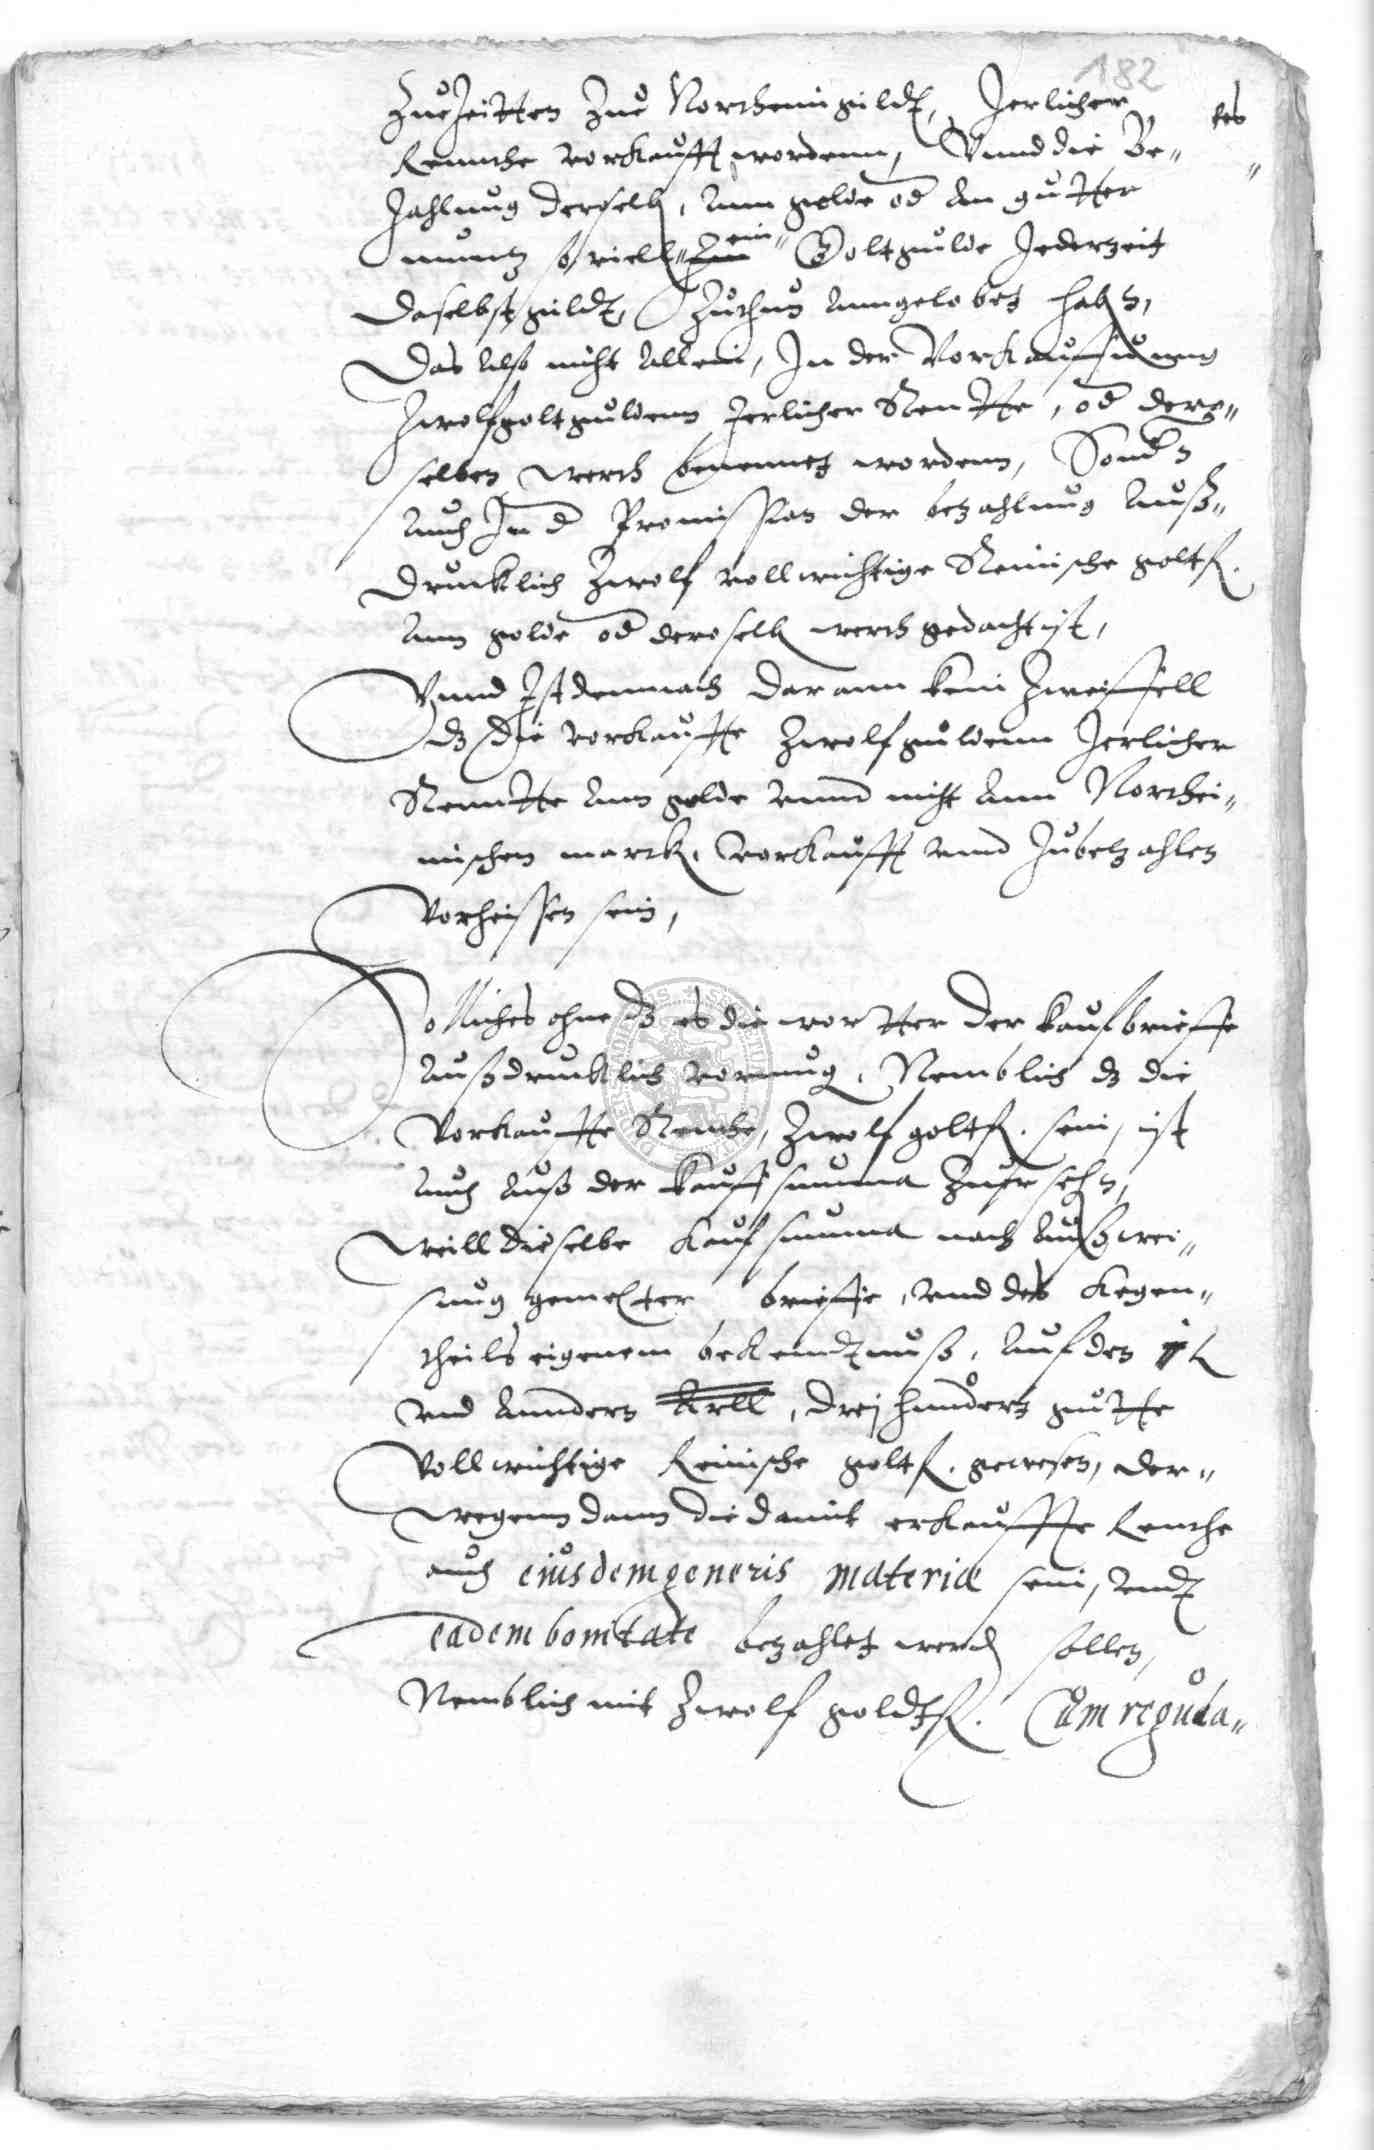 182
Zue Zeitten Zue Northeim gildt, Jerlicher
Renthe vorkaufft wordenn, Vnnd die Be„
zahlung derselb, ann golde od an gutter
muntz so viell ein Goltgulde Jederzeit
daselbst gildt, Zuthun anngelobet hab̄n,
Das also nicht allein, In der Vorkauffung
Zwolf goltguldenn Jerlicher Rentte, od dero„
selben werth benennet wordenn, Sond̄n
auch In d Promission der bezahlung auß„
drucklich Zwolf vollwichtige Reinische goltfl.
ann golde od deroselb werth gedacht ist,
Vnnd Ist demnach darann kein Zweiffell
dz die vorkauffte Zwolf guldenn Jerlicher
Renntte ann golde vnnd nicht ann Northei„
mischen marck, vorkaufft vnnd Zubezahlen
vorheissen sein,
Solliches ohne dz es die wortter der kaufbrieffe
außdrucklich vormug, Nemblich dz die
vorkauffte Renthe, Zwolf goltfl. sein, ist
auch auß der kauffsumma Zuersehn,
weill dieselbe kaufsumma nach außwei„
sung gemelter brieffe, vnd des kegen„
theils eigenem bekendtnuß, auf den
vnd anndern Arll, dreihundert gutte
vollwichtige Reinische goltfl. gewesen, der„
wegenn dann die damit erkauffte Renthe
auch eiusdem generis materiæ sein, vndt
eadem bonitate bezahlet werd sollen,
Nemblich mit Zwolf goldtfl. Cum regula„